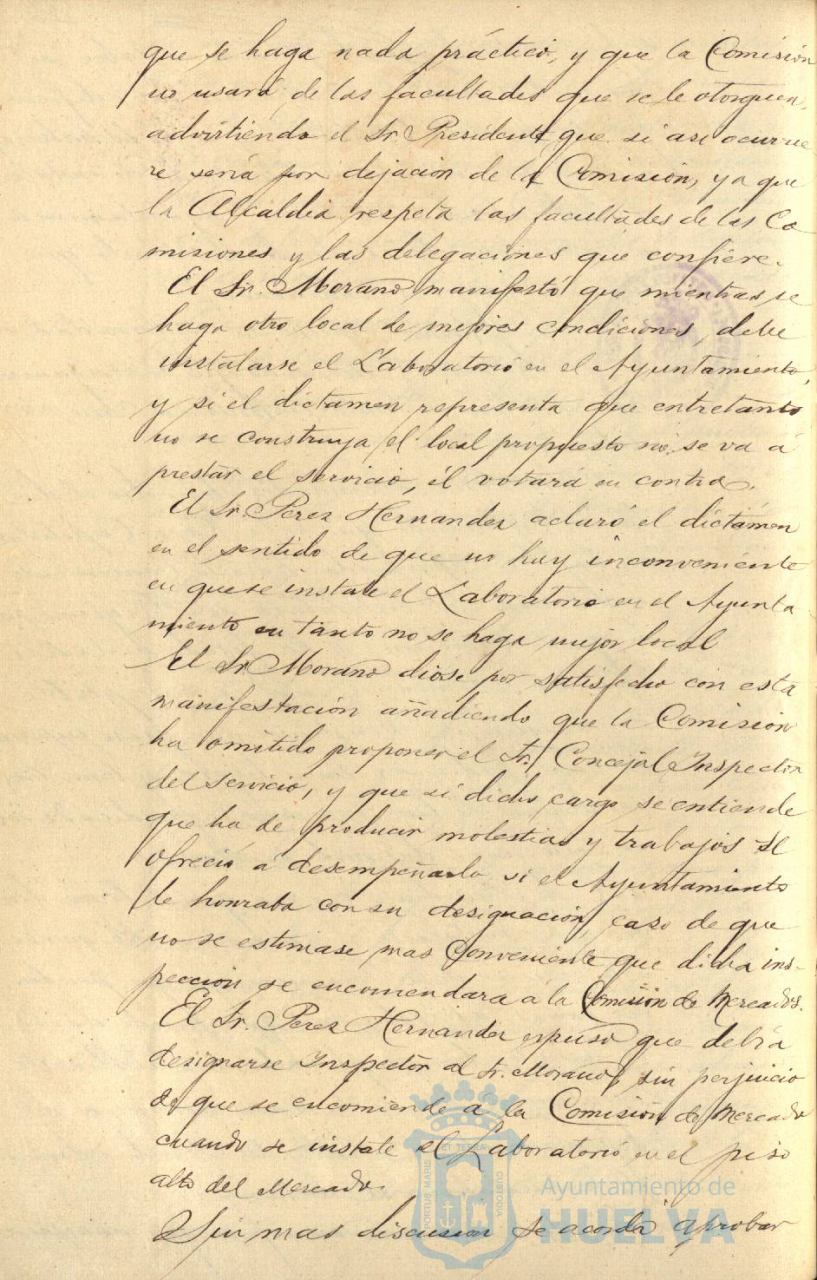 que se haga nada práctico, y que la Comisión
no usará de las facultades que se le otorguen,
advirtiendo el Sr. Presidente que si asi ocurrie
re sería por dejación de la Comisión, ya que
la Alcaldia respeta las facultades de las Co
misiones y las delegaciones que confiere.
El Sr. Morano manifestó que mientras se
haga otro local de mejores condiciones, debe
instalarse el Laboratorio en el Ayuntamiento,
y si el dictamen representa que entretanto
no se construya el local propuesto no se va á
prestar el servicio, él votará en contra.
El Sr. Perez Hernandez aclaró el dictámen
en el sentido de que no hay inconveniente
en que se instale el Laboratorio en el Ayunta
miento en tanto no se haga mejor local
El Sr. Morano dióse por satisfecho con esta
manifestación añadiendo que la Comisión
ha omitido proponer el Sr. Concejal Inspector
del servicio, y que si dicho cargo se entiende
que ha de producir molestias y trabajos se
ofreció á desempeñarlo si el Ayuntamiento
le honraba con su designación, caso de que
no se estimase mas conveniente que dicha ins-
pección se encomendara á la Comisión de Mercados.
El Sr. Perez Hernandez expuso que debía
designarse Inspector al Sr. Morano, sin perjuicio
de que se encomiende á la Comisión de Mercado
cuando se instale el Laboratorio en el piso
alto del Mercado.
Sin mas discusión se acordó aprobar
PORTUS MARIS
ET TERRE
CUSTODIA
Ayuntamiento de
HUELVA